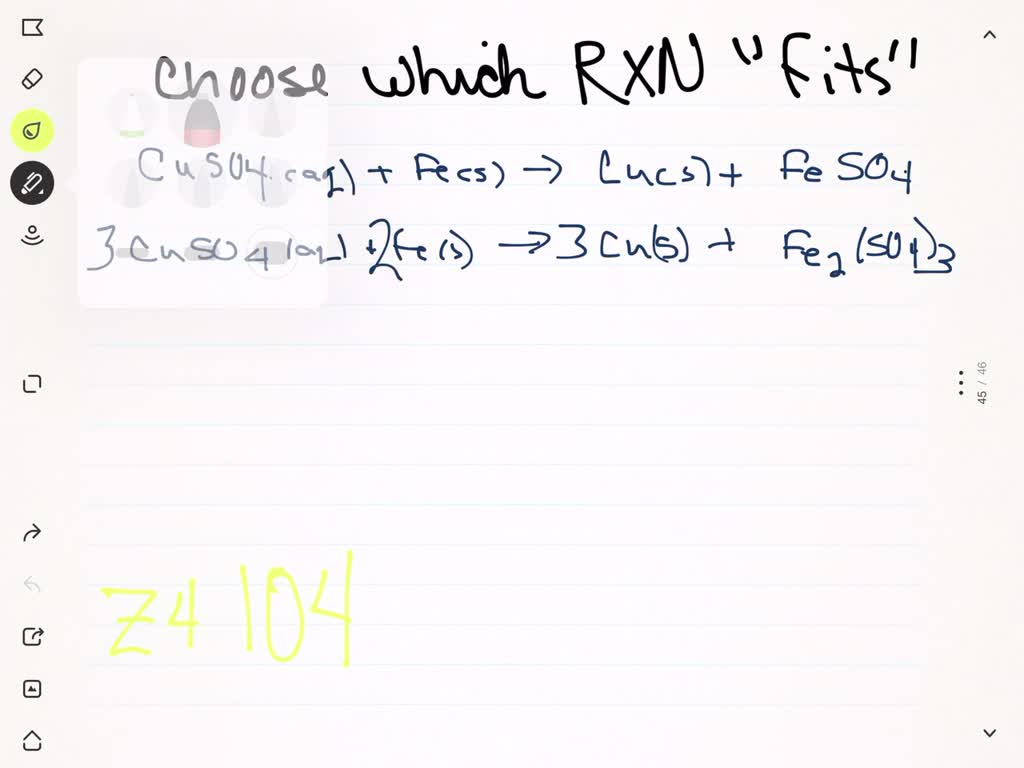 Choose which RXN "Fits"
CuSO4 (aq) + Fe(s) → Cu(s) + FeSO4
3 CuSO4 (aq) + 2Fe(s) → 3 Cu(s) + Fe2(SO4)3
45 / 46
Z4 104